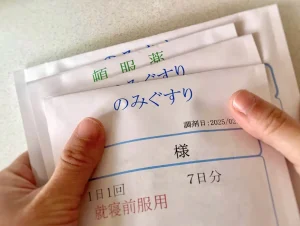 頓服薬
みぐすり
のみぐすり
調剤日:2025/0
様
1日1回 7日分
就寝前服用